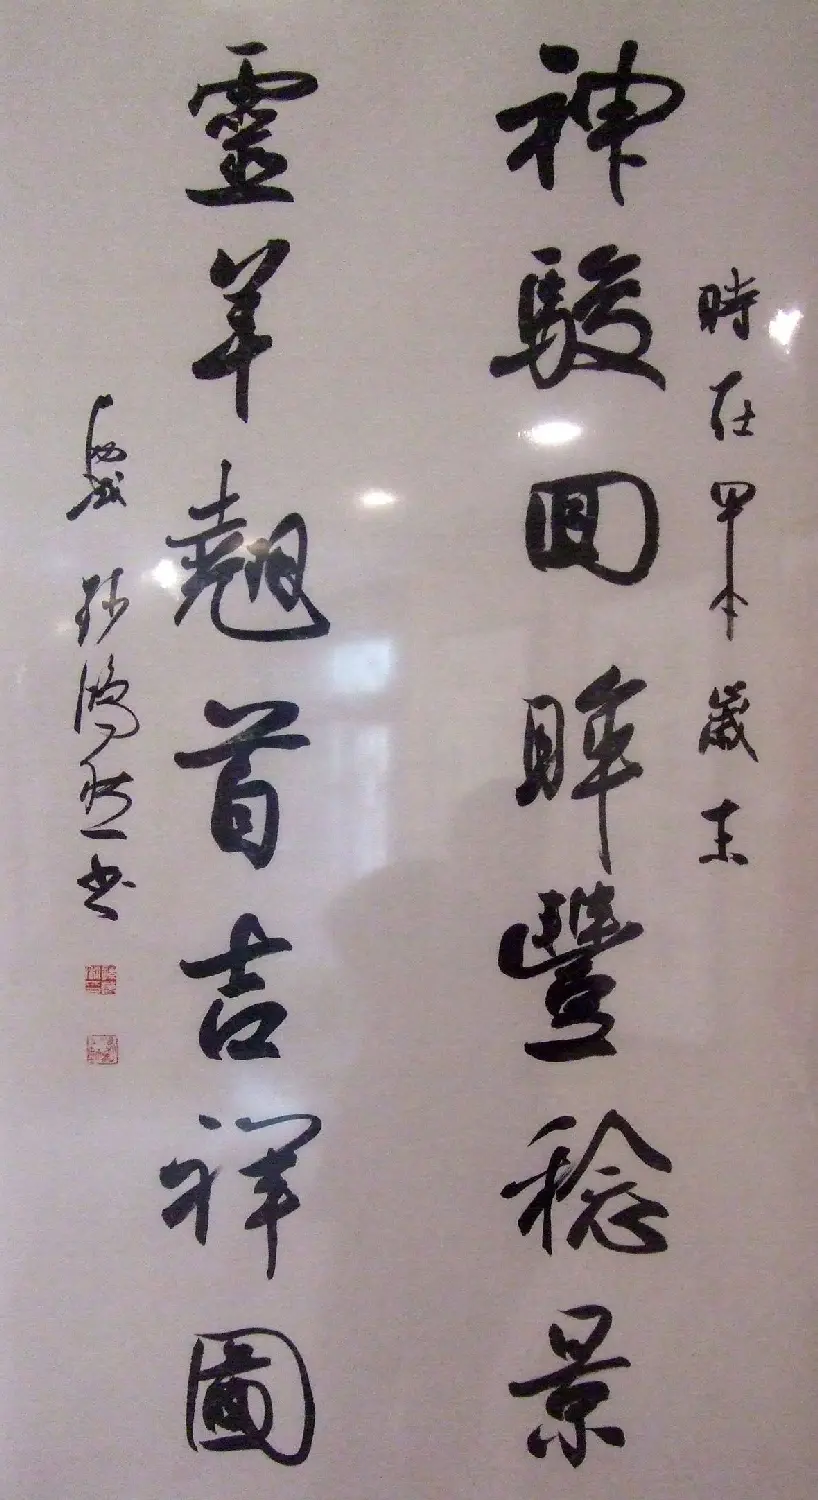 時在甲午歲末
神駿回眸豐稔景
靈羊翹首吉祥圖
孫鴻書